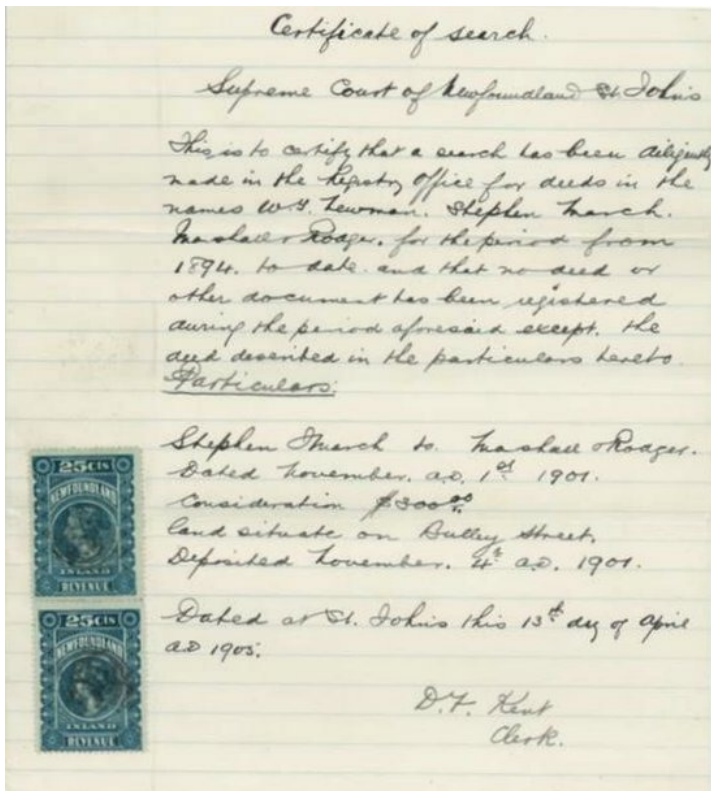 Certificate of search.
Supreme Court of Newfoundland St. John's
This is to certify that a search has been diligently
made in the Registry Office for deeds in the
names W.J. Newman. Stephen March.
Marshall & Rodger. for the period from
1894. to date and that no deed or
other document has been registered
during the period aforesaid except. the
deed described in the particulars hereto.
Particulars:
Stephen March to Marshall & Rodger.
Dated November. a.D. 1st 1901.
Consideration $300.00
land situate on Bulley Street.
Deposited November. 4th a.D. 1901.
Dated at St. Johns this 13th day of April
a.D 1905.
D.F. Kent
Clerk.
25CTS
NEWFOUNDLAND
INLAND
REVENUE
25CTS
NEWFOUNDLAND
INLAND
REVENUE